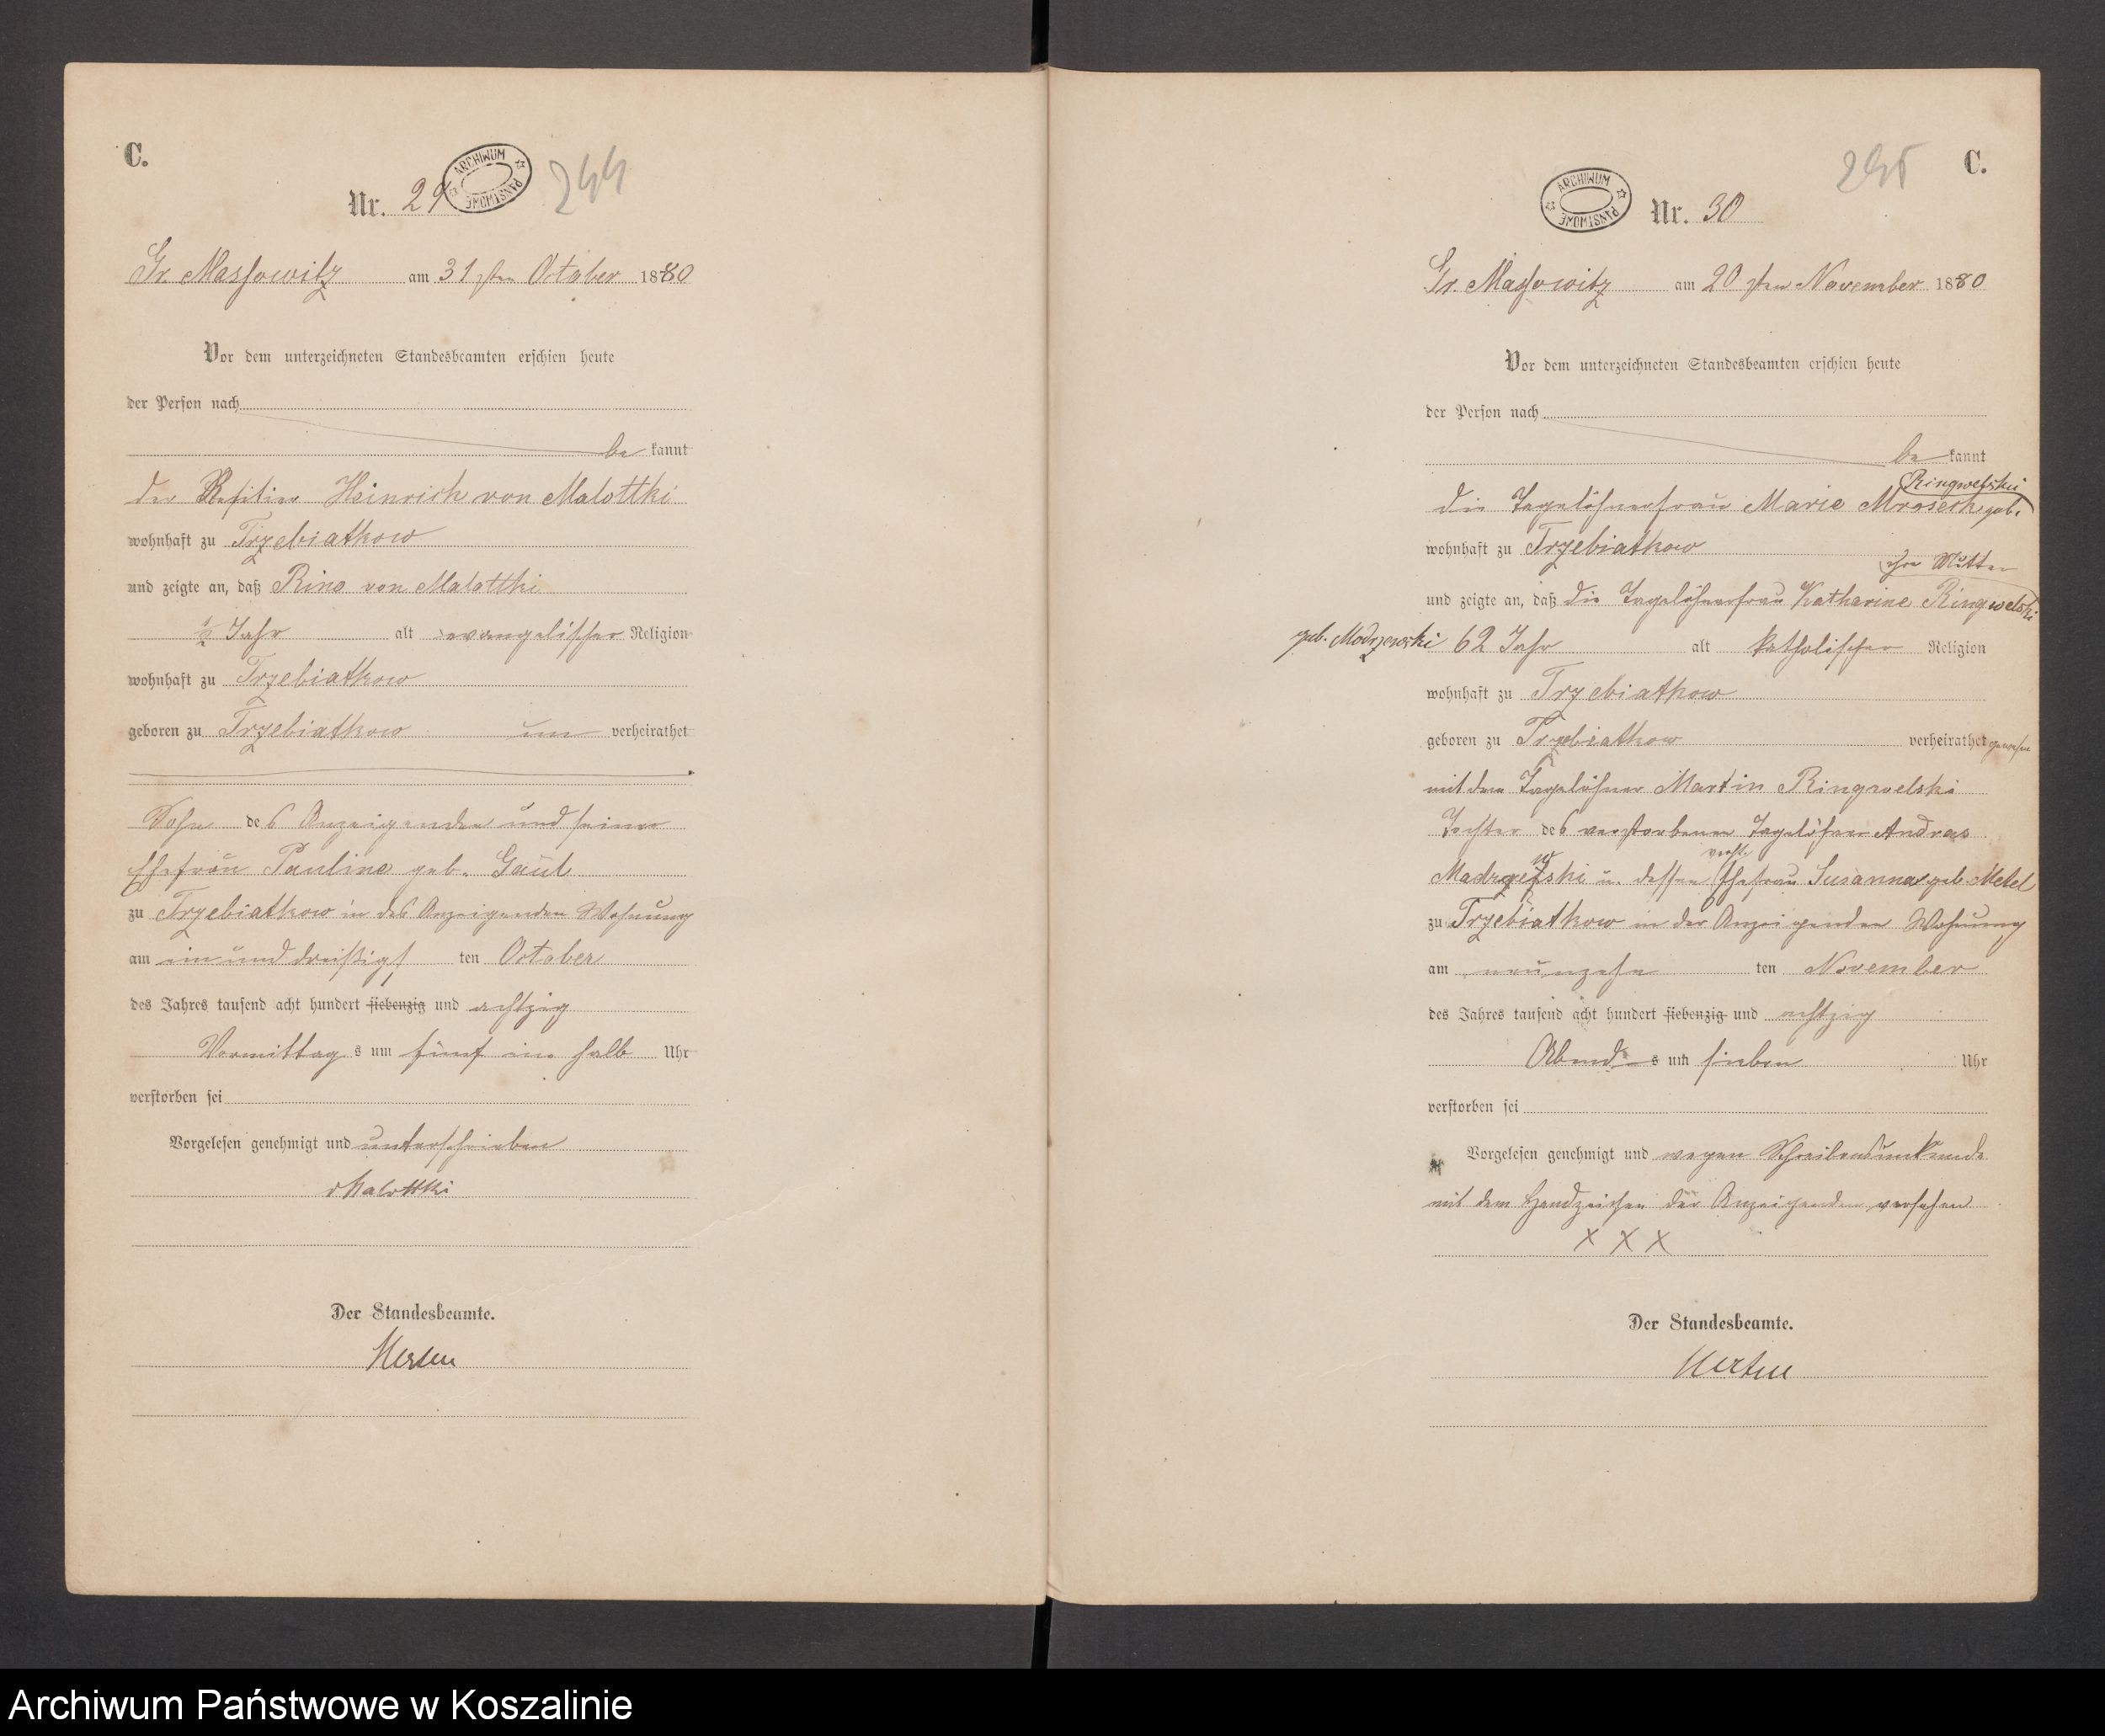 C.
Nr. 29
ARCHIWUM PAŃSTWOWE
244
Gr. Massowitz am 31sten October 1880
Vor dem unterzeichneten Standesbeamten erschien heute
der Person nach
be kannt
der Besitzer Heinrich von Malottki
wohnhaft zu Trzebiatkow
und zeigte an, daß Rino von Malottki
½ Jahr alt evangelischer Religion
wohnhaft zu Trzebiatkow
geboren zu Trzebiatkow un verheirathet
Sohn des Anzeigenden und seiner
Ehefrau Pauline geb. Gaul
zu Trzebiatkow in des Anzeigenden Wohnung
am ein und dreißigs ten October
des Jahres tausend acht hundert siebenzig und achtzig
Vormittag s um fünf ein halb Uhr
verstorben sei
Vorgelesen genehmigt und unterschrieben
vMalottki
Der Standesbeamte.
Merten
C.
295
ARCHIWUM PAŃSTWOWE
Nr. 30
Gr. Massowitz am 20sten November 1880
Vor dem unterzeichneten Standesbeamten erschien heute
der Person nach
be kannt
Ringwelski
die Tagelöhnerfrau Marie Mroseck geb.
wohnhaft zu Trzebiatkow
ihre Mutter
und zeigte an, daß die Tagelöhnerfrau Katharine Ringwelski
geb. Modrzewski 62 Jahr alt katholischer Religion
wohnhaft zu Trzebiatkow
geboren zu Trzebiatkow verheirathet gewesen
mit dem Tagelöhner Martin Ringwelski
Tochter des verstorbenen Tagelöhner Andreas
w verst.
Madrzewski u. dessen Ehefrau Susanna geb. Metel
zu Trzebiatkow in der Anzeigenden Wohnung
am neunzehn ten November
des Jahres tausend acht hundert siebenzig und achtzig
Abend s um sieben Uhr
verstorben sei
Vorgelesen genehmigt und wegen Schreibensunkunde
mit dem Handzeichen der Anzeigenden versehen
X X X
Der Standesbeamte.
Merten
Archiwum Państwowe w Koszalinie